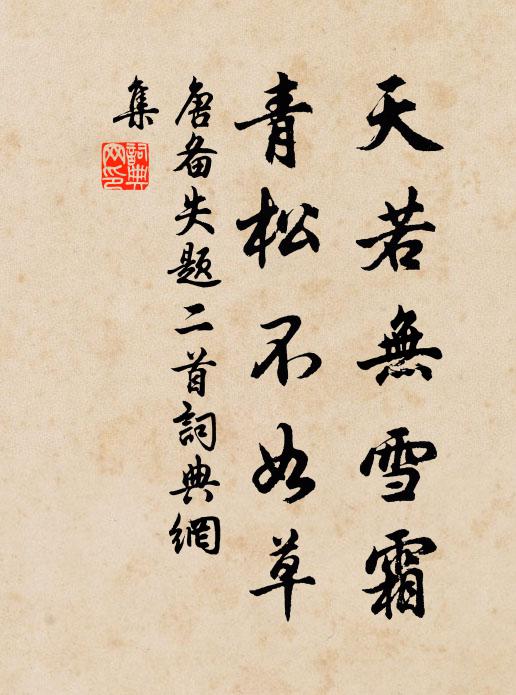 天若無雪霜
青松不如草
唐备失题二首詞典網
集
詞典
网印